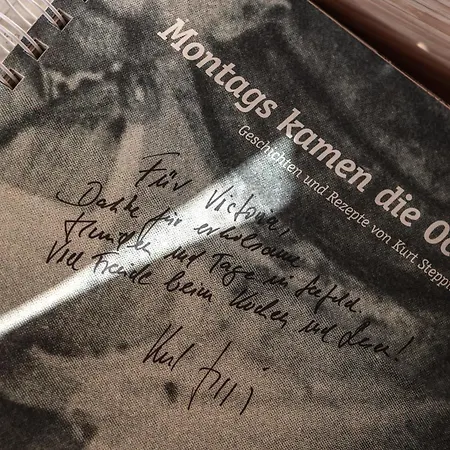 Montags kamen die Oc
Geschichten und Rezepte von Kurt Stepp
Für Victoria,
Danke für erholsame
Stunden und Tage in Seefeld.
Viel Freude beim Kochen und Lesen!